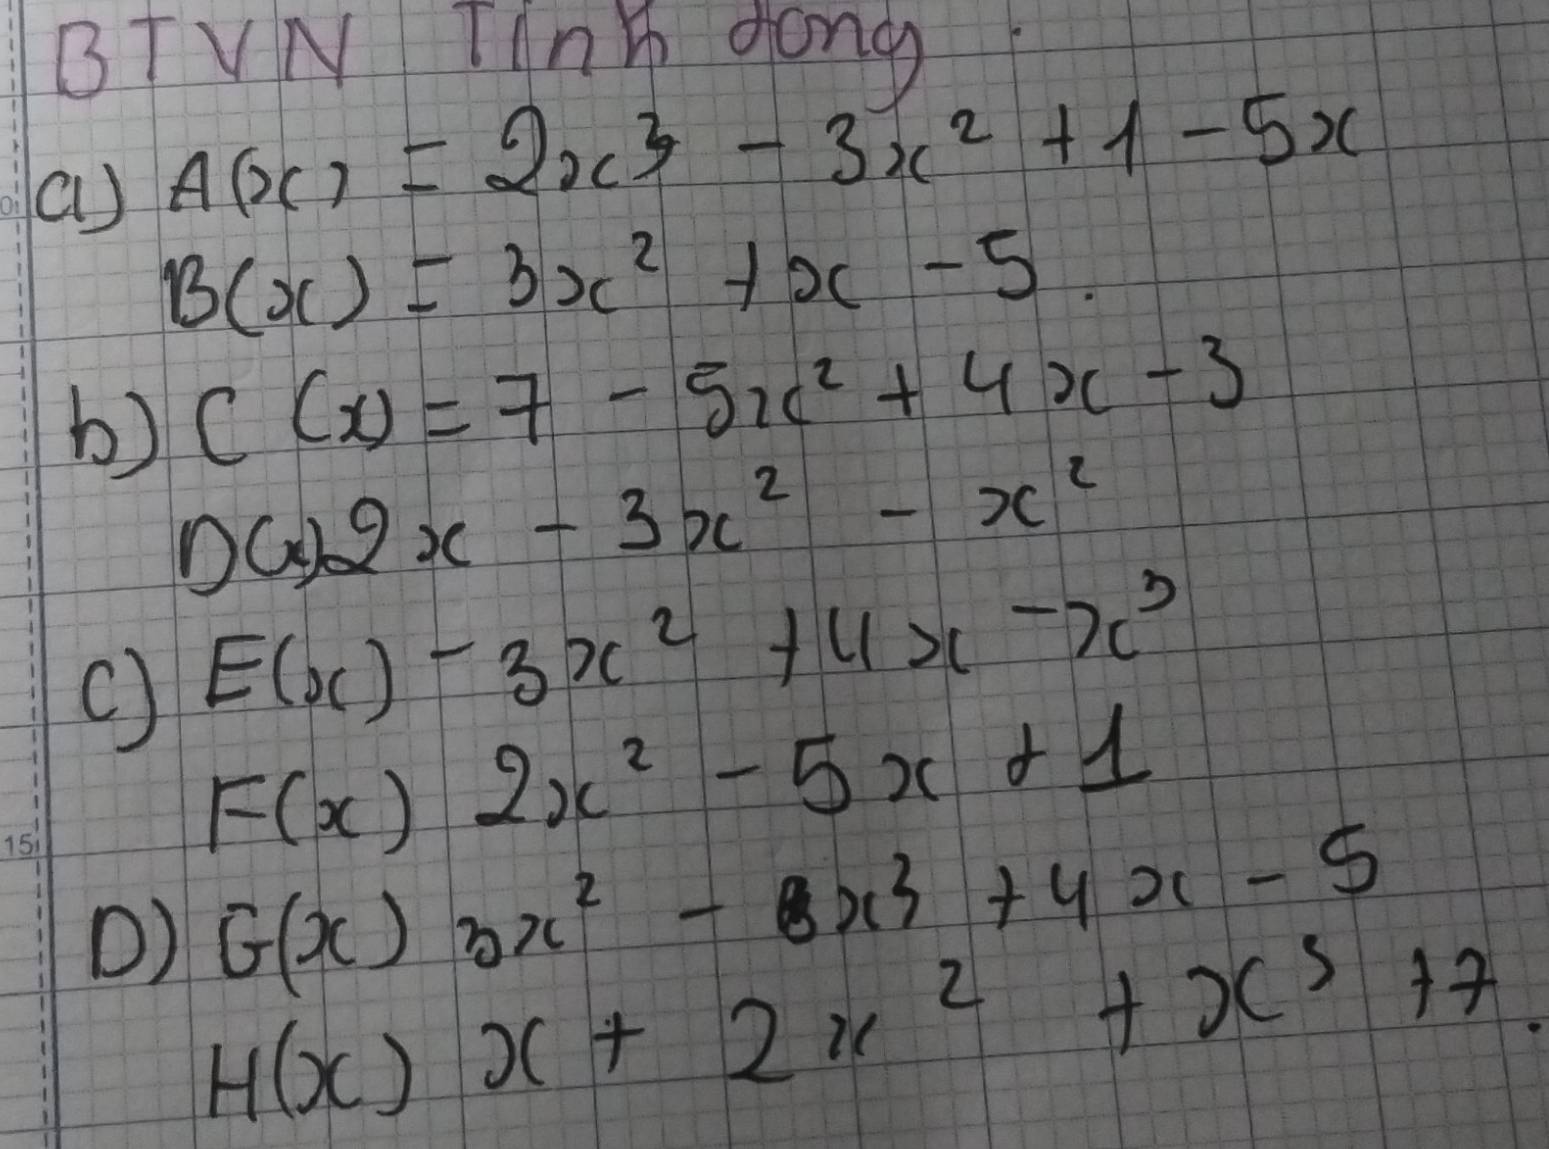 BTVN Tính dong.
a) A(x) = 2x³ - 3x² + 1 - 5x
B(x) = 3x² + x - 5.
b) C(x) = 7 - 5x² + 4x - 3
D(x) 2x - 3x² - x²
c) E(x) - 3x² + 4x - x³
F(x) 2x² - 5x + 1
D) G(x) 3x² - 3x³ + 4x - 5
H(x) x + 2x² + x³ + 7.
15